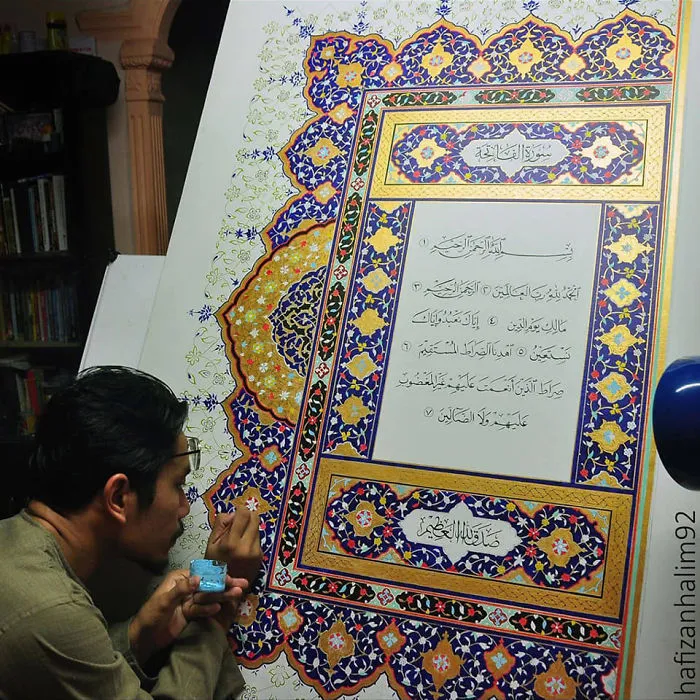 سُورَةُ الْفَاتِحَة
بِسْمِ اللَّهِ الرَّحْمَنِ الرَّحِيمِ ١
الْحَمْدُ لِلَّهِ رَبِّ الْعَالَمِينَ ٢ الرَّحْمَنِ الرَّحِيمِ ٣
مَالِكِ يَوْمِ الدِّينِ ٤ إِيَّاكَ نَعْبُدُ وَإِيَّاكَ
نَسْتَعِينُ ٥ اهْدِنَا الصِّرَاطَ الْمُسْتَقِيمَ ٦
صِرَاطَ الَّذِينَ أَنْعَمْتَ عَلَيْهِمْ غَيْرِ الْمَغْضُوبِ
عَلَيْهِمْ وَلَا الضَّالِّينَ ٧
صَدَقَ اللَّهُ الْعَظِيم
hafizanhalim92